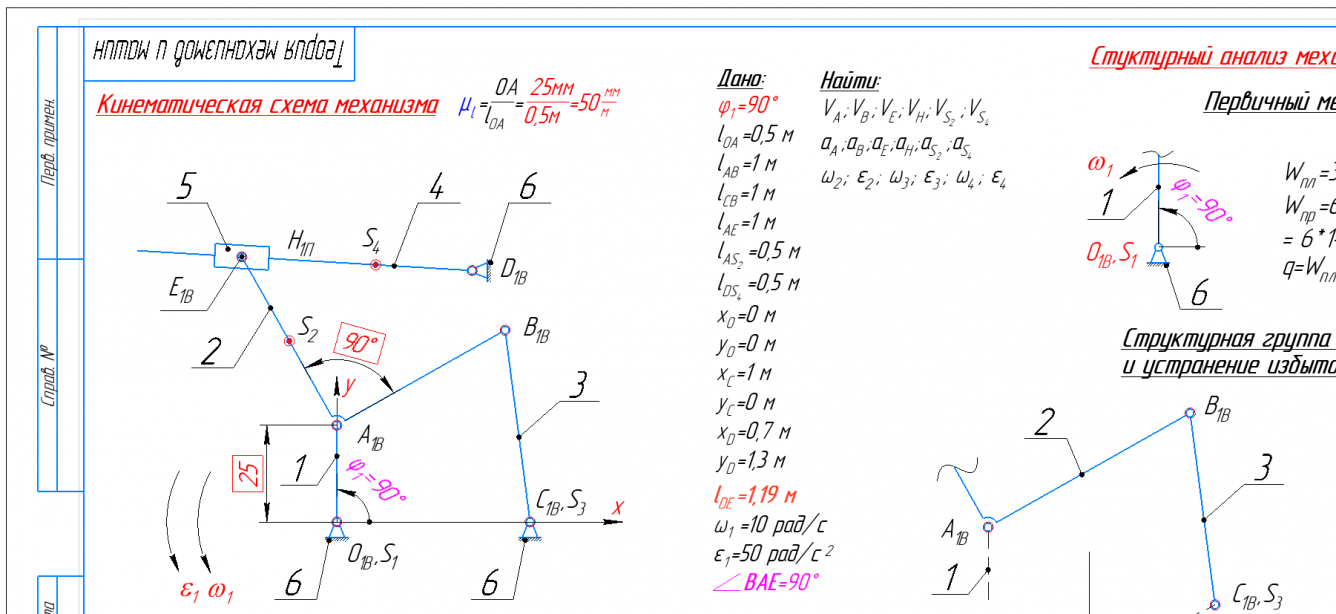 Теория механизмов и машин
Перв. примен.
Справ. №
Кинематическая схема механизма
μl = OA / lOA = 25мм / 0,5м = 50 мм/м
5
4
6
H1П
S4
D1В
E1В
2
S2
90°
B1В
3
y
A1В
25
1
φ1=90°
C1В, S3
x
O1В, S1
6
6
ε1 ω1
Дано:
φ1=90°
lOA=0,5 м
lAB=1 м
lCB=1 м
lAE=1 м
lAS2=0,5 м
lDS4=0,5 м
xO=0 м
yO=0 м
xC=1 м
yC=0 м
xD=0,7 м
yD=1,3 м
lDE=1,19 м
ω1=10 рад/с
ε1=50 рад/с²
∠BAE=90°
Найти:
VA; VB; VE; VH; VS2; VS4
aA; aB; aE; aH; aS2; aS4
ω2; ε2; ω3; ε3; ω4; ε4
Первичный ме
ω1
1
φ1=90°
O1В, S1
6
Wпл=3
Wпр=6
= 6*1-
q=Wпл
Структурная группа
и устранение избыто
B1В
2
3
A1В
1
C1В, S3